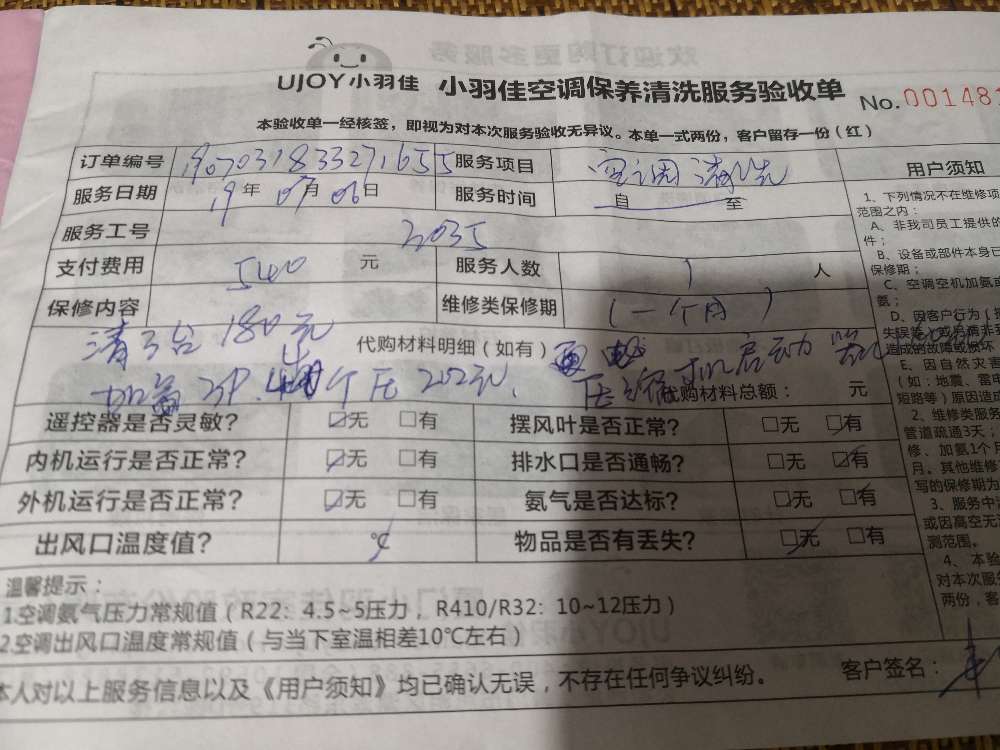 UJOY小羽佳 小羽佳空调保养清洗服务验收单 No.001481
本验收单一经核签，即视为对本次服务验收无异议。本单一式两份，客户留存一份（红）
订单编号 1907031833271655 服务项目 空调清洗
服务日期 19年07月06日 服务时间 自 至
服务工号 2035
支付费用 540 元 服务人数 1 人
保修内容 维修类保修期 （一个月）
清3台180元 代购材料明细（如有）
加氨3P. 个压 压缩机启动
代购材料总额： 元
遥控器是否灵敏？ ☑无 □有 摆风叶是否正常？ □无 ☑有
内机运行是否正常？ ☑无 □有 排水口是否通畅？ □无 ☑有
外机运行是否正常？ ☑无 □有 氨气是否达标？ □无 ☑有
出风口温度值？ ℃ 物品是否有丢失？ ☑无 □有
温馨提示：
1.空调氨气压力常规值（R22：4.5~5压力，R410/R32：10~12压力）
2.空调出风口温度常规值（与当下室温相差10℃左右）
本人对以上服务信息以及《用户须知》均已确认无误，不存在任何争议纠纷。 客户签名：
用户须知
1、下列情况不在维修项
范围之内：
A、非我司员工提供的
件；
B、设备或部件本身已
保修期；
C、空调空机加氨或
氨；
D、因客户行为（
失误等）或另商非
造成的故障或损坏
E、因自然灾害
（如：地震、雷电
短路等）原因造成
2、维修类服务
管道疏通3天；
修、加氨1个月
月。其他维修
写的保修期为
3、服务中
或因高空无
测范围。
4、本验
对本次服
两份，客